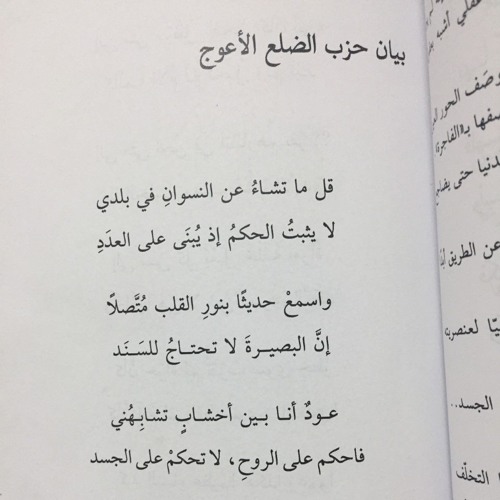 بيان حزب الضلع الأعوج
قل ما تشاءُ عن النسوانِ في بلدي
لا يثبتُ الحكمُ إذ يُبنَى على العدَدِ
واسمعْ حديثًا بنورِ القلب مُتَّصلًا
إنَّ البصيرةَ لا تحتاجُ للسَنَد
عودٌ أنا بين أخشابٍ تشابِهُني
فاحكم على الروحِ، لا تحكمْ على الجسد
وصَف الحور
صفها بـ«الفاجرة
لدنيا حتى
عن الطريق
يّا لعنصريه
الجسد..
ا التخلّف